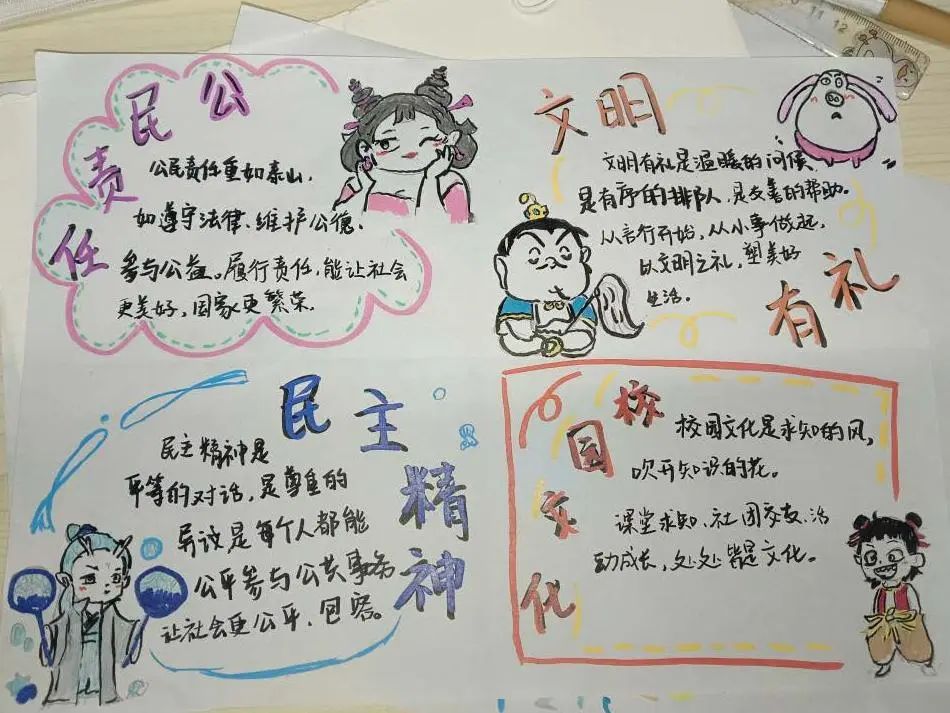 公民责任
公民责任重如泰山,
如遵守法律、维护公德、
参与公益。履行责任,能让社会
更美好,国家更繁荣.
文明有礼
文明有礼是温暖的问候,
是有序的排队,是友善的帮助。
从言行开始,从小事做起,
以文明之礼,塑美好
生活。
民主精神
民主精神是
平等的对话,是尊重的
异议是每个人都能
公平参与公共事务
让社会更公平,包容。
校园文化
校园文化是求知的风,
吹开知识的花。
课堂求知、社团交友、活
动成长,处处皆是文化。
11 12